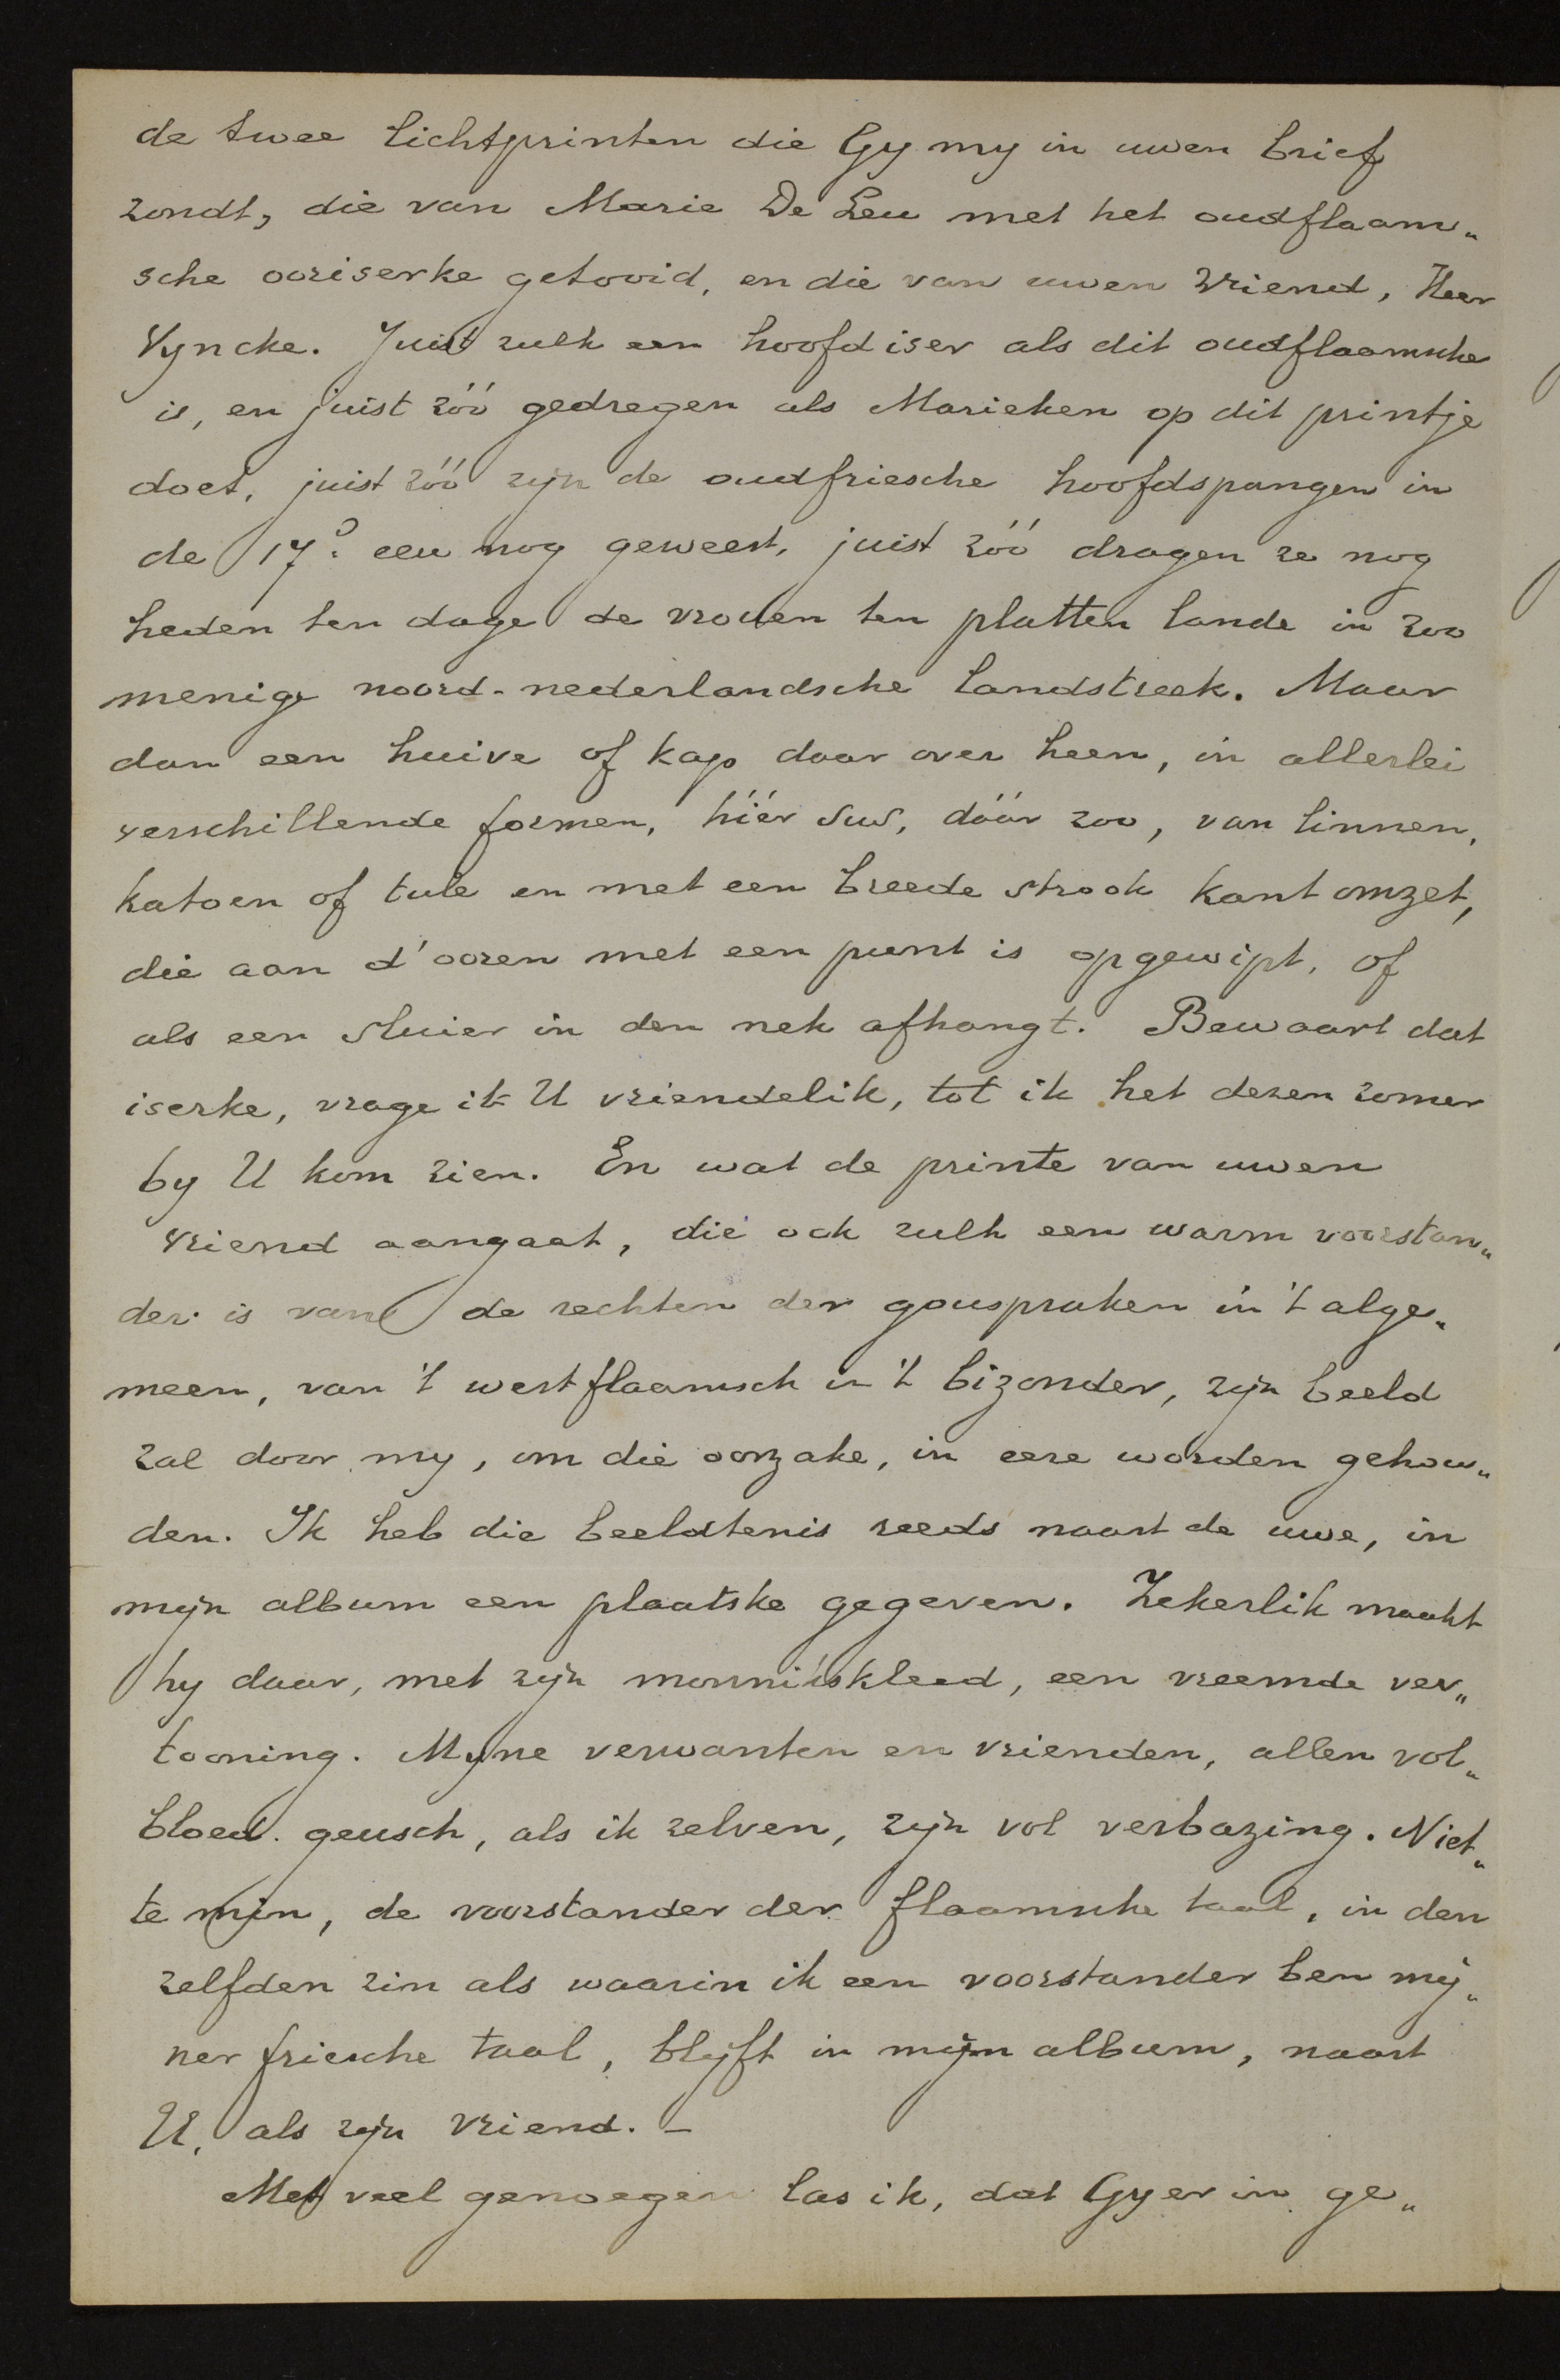 de twee lichtprinten die Gy my in uwen brief
zondt, die van Marie De Leu met het oudflaam„
sche ooriserke getooid, en die van uwen vriend, Heer
Vyncke. Juist zulk een hoofdiser als dit oudflaamsche
is, en juist zóó gedregen als Marieken op dit printje
doet, juist zóó zyn de oudfriesche hoofdspangen in
de 17e eeu nog geweest, juist zóó dragen ze nog
heden ten dage de vrouen ten platten lande in zoo
menige noord-nederlandsche landstreek. Maar
dan een huive of kap daar over heen, in allerlei
verschillende formen, híér sus, dáár zoo, van linnen,
katoen of tule en met een breede strook kant omzet,
die aan d'ooren met een punt is opgewipt, of
als een sluier in den nek afhangt. Bewaart dat
iserke, vrage ik U vriendelik, tot ik het dezen zomer
by U kom zien. En wat de printe van uwen
vriend aangaat, die ook zulk een warm voorstan„
der is van de rechten der gouspraken in 't alge„
meen, van 't westflaamsch in 't bizonder, zyn beeld
zal door my, om die oorzake, in eere worden gehou„
den. Ik heb die beeldtenis reeds naast de uwe, in
myn album een plaatske gegeven. Zekerlik maakt
hy daar, met zyn monnikskleed, een vreemde ver„
tooning. Myne verwanten en vrienden, allen vol„
bloed geusch, als ik zelven, zyn vol verbazing. Niet„
te min, de voorstander der flaamsche taal, in den
zelfden zin als waarin ik een voorstander ben my„
ner friesche taal, blyft in myn album, naast
U, als zyn vriend. –
Met veel genoegen las ik, dat Gy er in ge„